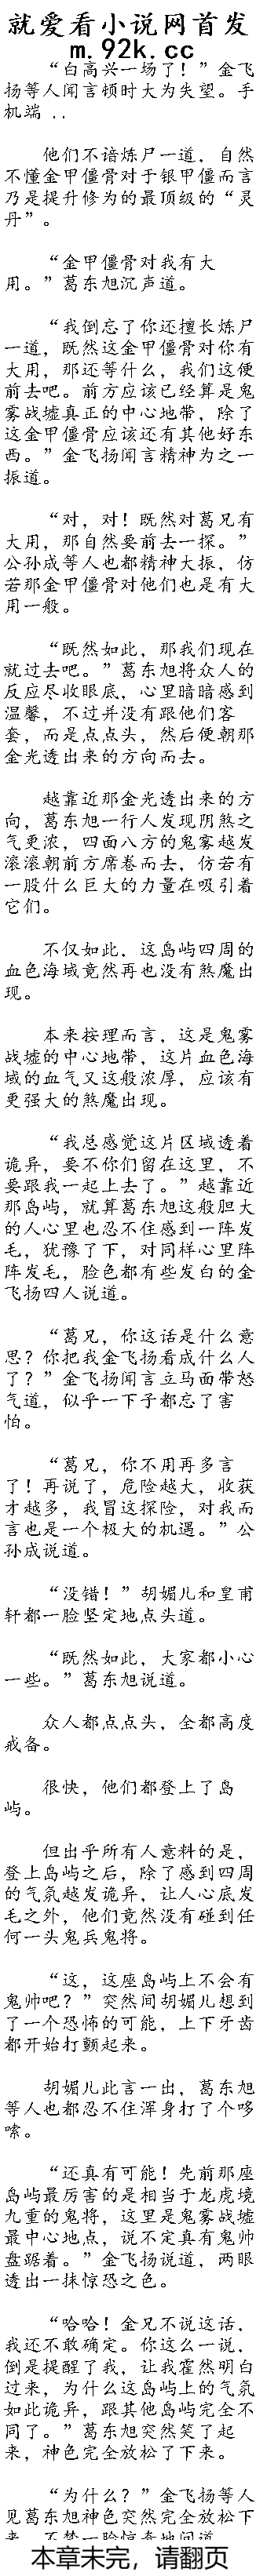 就爱看小说网首发
m.92k.cc
“白高兴一场了！”金飞
扬等人闻言顿时大为失望。手
机端 ..
他们不谙炼尸一道，自然
不懂金甲僵骨对于银甲僵而言
乃是提升修为的最顶级的“灵
丹”。
“金甲僵骨对我有大
用。”葛东旭沉声道。
“我倒忘了你还擅长炼尸
一道，既然这金甲僵骨对你有
大用，那还等什么，我们这便
前去吧。前方应该已经算是鬼
雾战墟真正的中心地带，除了
这金甲僵骨应该还有其他好东
西。”金飞扬闻言精神为之一
振道。
“对，对！既然对葛兄有
大用，那自然要前去一探。”
公孙成等人也都精神大振，仿
若那金甲僵骨对他们也是有大
用一般。
“既然如此，那我们现在
就过去吧。”葛东旭将众人的
反应尽收眼底，心里暗暗感到
温馨，不过并没有跟他们客
套，而是点点头，然后便朝那
金光透出来的方向而去。
越靠近那金光透出来的方
向，葛东旭一行人发现阴煞之
气更浓，四面八方的鬼雾越发
滚滚朝前方席卷而去，仿若有
一股什么巨大的力量在吸引着
它们。
不仅如此，这岛屿四周的
血色海域竟然再也没有煞魔出
现。
本来按理而言，这是鬼雾
战墟的中心地带，这片血色海
域的血气又这般浓厚，应该有
更强大的煞魔出现。
“我总感觉这片区域透着
诡异，要不你们留在这里，不
要跟我一起上去了。”越靠近
那岛屿，就算葛东旭这般胆大
的人心里也忍不住感到一阵发
毛，犹豫了下，对同样心里阵
阵发毛，脸色都有些发白的金
飞扬四人说道。
“葛兄，你这话是什么意
思？你把我金飞扬看成什么人
了？”金飞扬闻言立马面带怒
气道，似乎一下子都忘了害
怕。
“葛兄，你不用再多言
了！再说了，危险越大，收获
才越多，我冒这探险，对我而
言也是一个极大的机遇。”公
孙成说道。
“没错！”胡媚儿和皇甫
轩都一脸坚定地点头道。
“既然如此，大家都小心
一些。”葛东旭说道。
众人都点点头，全都高度
戒备。
很快，他们都登上了岛
屿。
但出乎所有人意料的是，
登上岛屿之后，除了感到四周
的气氛越发诡异，让人心底发
毛之外，他们竟然没有碰到任
何一头鬼兵鬼将。
“这，这座岛屿上不会有
鬼帅吧？”突然间胡媚儿想到
了一个恐怖的可能，上下牙齿
都开始打颤起来。
胡媚儿此言一出，葛东旭
等人也都忍不住浑身打了个哆
嗦。
“还真有可能！先前那座
岛屿最厉害的是相当于龙虎境
九重的鬼将，这里是鬼雾战墟
最中心地点，说不定真有鬼帅
盘踞着。”金飞扬说道，两眼
透出一抹惊恐之色。
“哈哈！金兄不说这话，
我还不敢确定。你这么一说，
倒是提醒了我，让我霍然明白
过来，为什么这岛屿上的气氛
如此诡异，跟其他岛屿完全不
同了。”葛东旭突然笑了起
来，神色完全放松了下来。
“为什么？”金飞扬等人
见葛东旭神色突然完全放松下
来，不禁一脸惊奇地问道
本章未完，请翻页